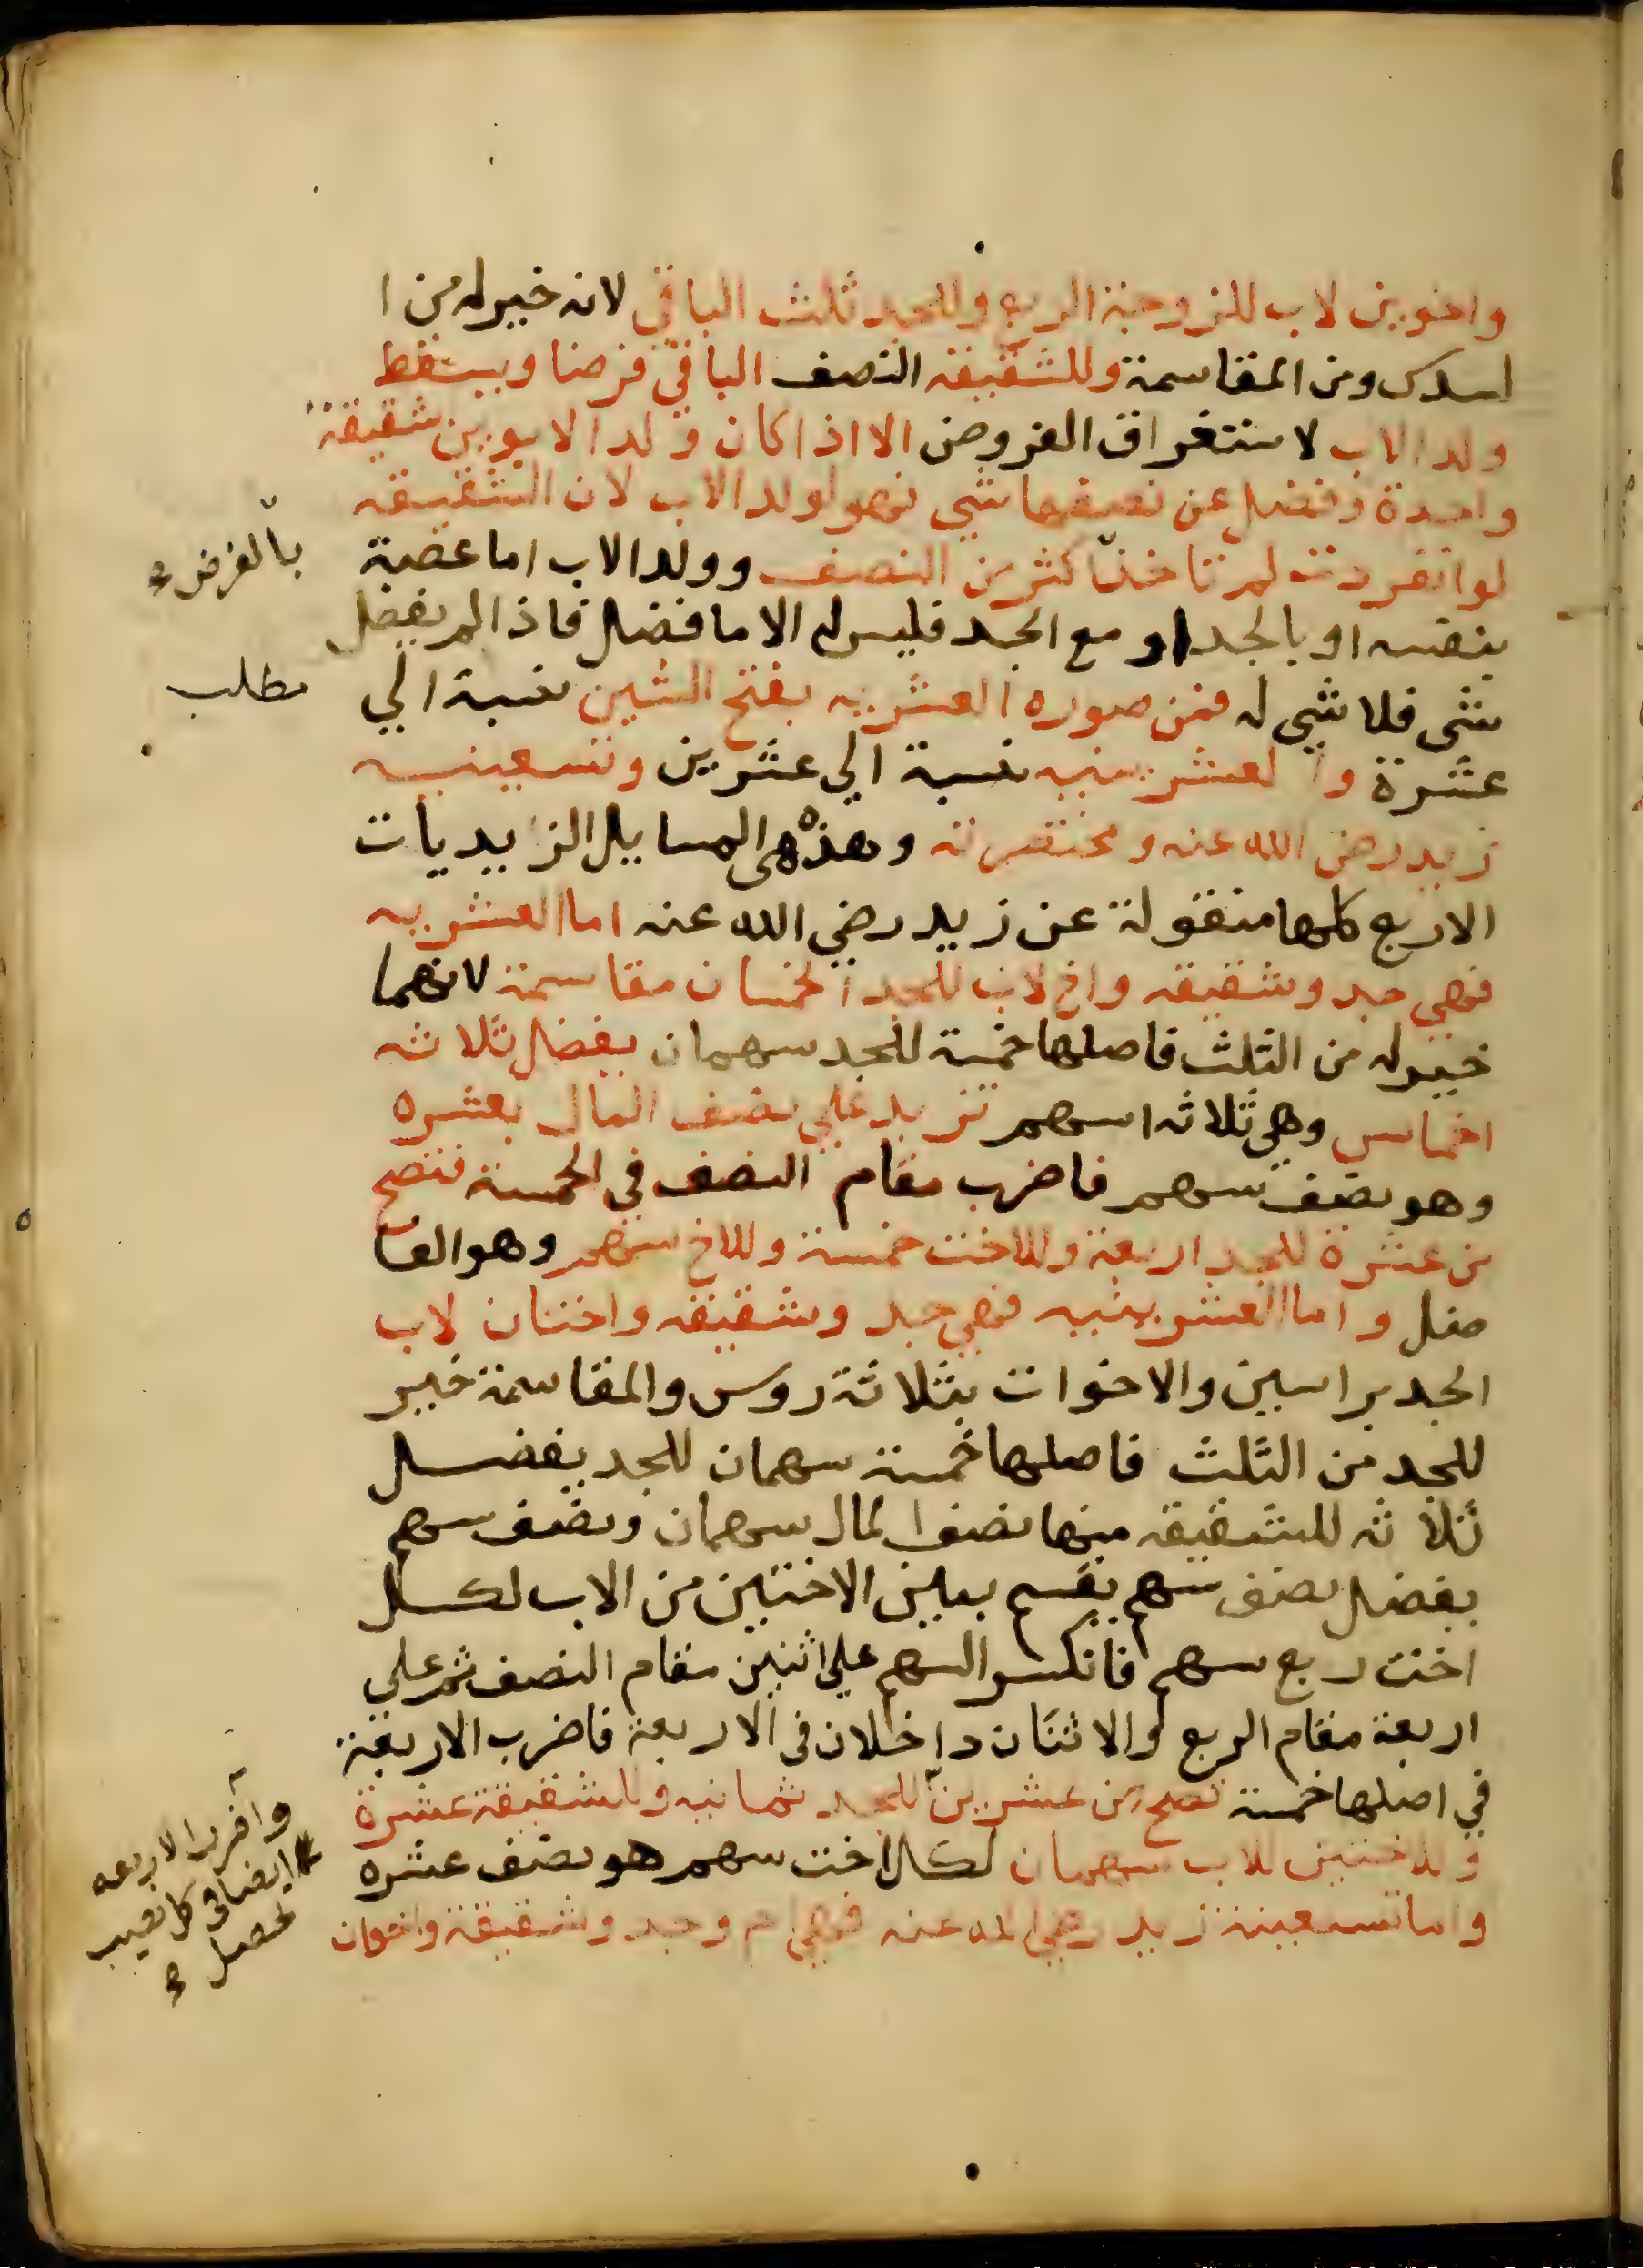 واخوين لاب للزوجة الربع وللجد ثلث الباقي لانه خير له من ا
لسدس ومن المقاسمة وللشقيقه النصف الباقي فرضا ويسقط
ولد الاب لاستغراق الفروض الا اذا كان ولد الابوين شقيقة
واحدة وفضل عن نصيبها شي فهو لولد الاب لان الشقيقه
لو انفردت لم تاخذ اكثر من النصف وولد الاب اما عصبة
بنفسه او بالجد او مع الجد فليس له الا ما فضل فاذا لم يفضل
شي فلا شي له فمن صوره العشريه بفتح الشين نسبة الي
عشرة والعشرينيه نسبة الي عشرين وتسعينيه
زيد رضي الله عنه ومختصرته وهذه هي المسايل الزيديات
الاربع كلها منقولة عن زيد رضي الله عنه اما العشريه
فهي جد وشقيقه واخ لاب للجد الخمسان مقاسمة لانهما
خير له من الثلث فاصلها خمسة للجد سهمان يفضل ثلاثه
اخماس وهي ثلاثه اسهم تزيد علي نصف المال بعشره
وهو نصف سهم فاضرب مقام النصف في الخمسة فتصح
من عشرة للجد اربعة وللاخت خمسة وللاخ سهم وهو الفا
ضل واما العشرينيه فهي جد وشقيقه واختان لاب
الجد براسين والاخوات بثلاثة روس والمقاسمة خير
للجد من الثلث فاصلها خمسة سهمان للجد يفضل
ثلاثه للشقيقه منها نصف المال سهمان ونصف سهم
يفضل نصف سهم يقسم ببين الاختين من الاب لكل
اخت ربع سهم فانكسر السهم علي اثنين مقام النصف ثم علي
اربعة مقام الربع والاثنان داخلان في الاربعة فاضرب الاربعة
في اصلها خمسة تصح من عشرين للجد ثمانيه وللشقيقة عشرة
وللاختين للاب سهمان لكل اخت سهم هو نصف عشره
واما تسعينة زيد رضي الله عنه فهي ام وجد وشقيقة واخوان
بالفرض
مطلب
واضرب الاربعه
ايضا في كل نصيب
يحصل